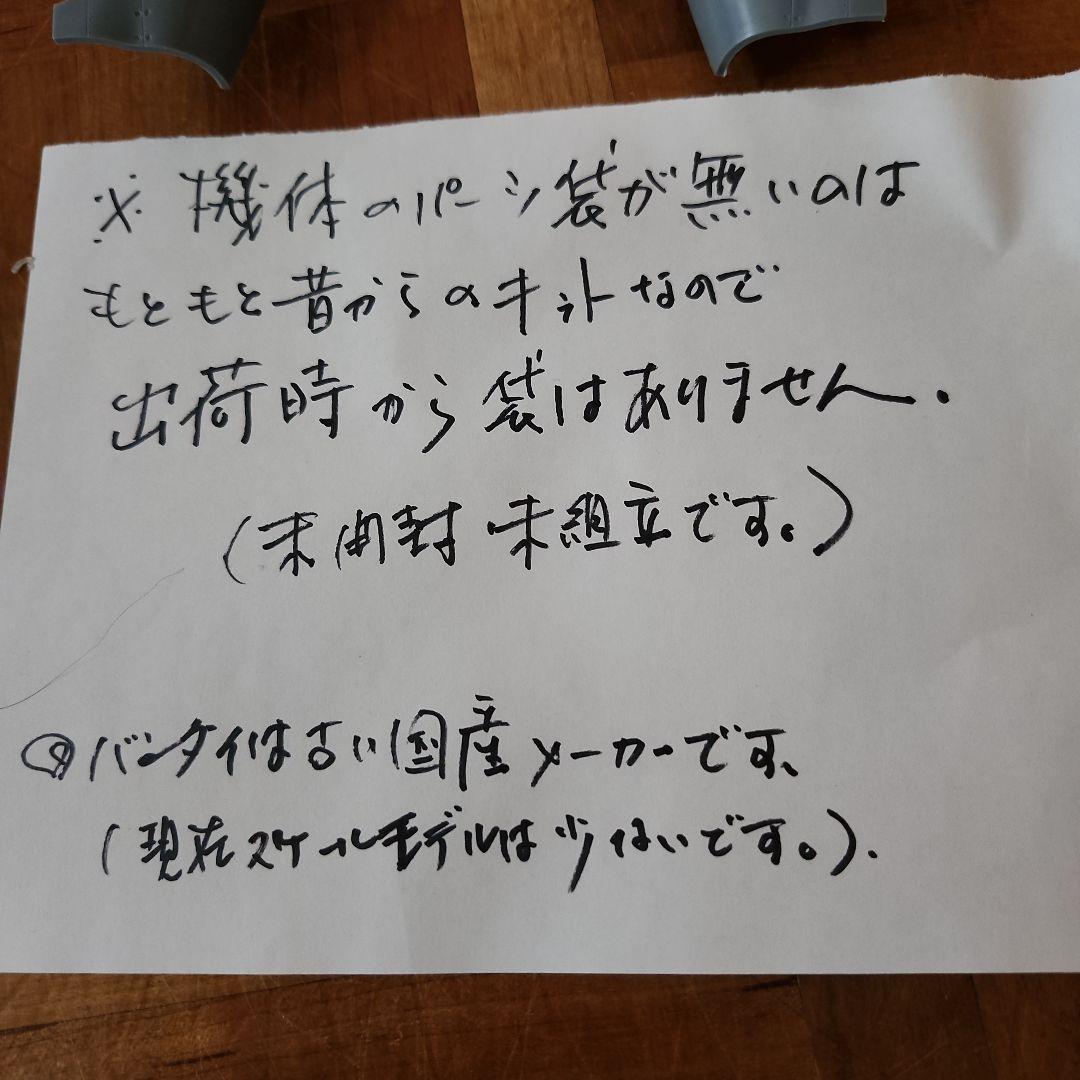 ※ 機体のパーツ袋が無いのは
もともと昔からのキットなので
出荷時から袋はありません.
(未開封 未組立です。)
◎バンダイは古い国産メーカーです、
(現在スケールモデルは少ないです。).